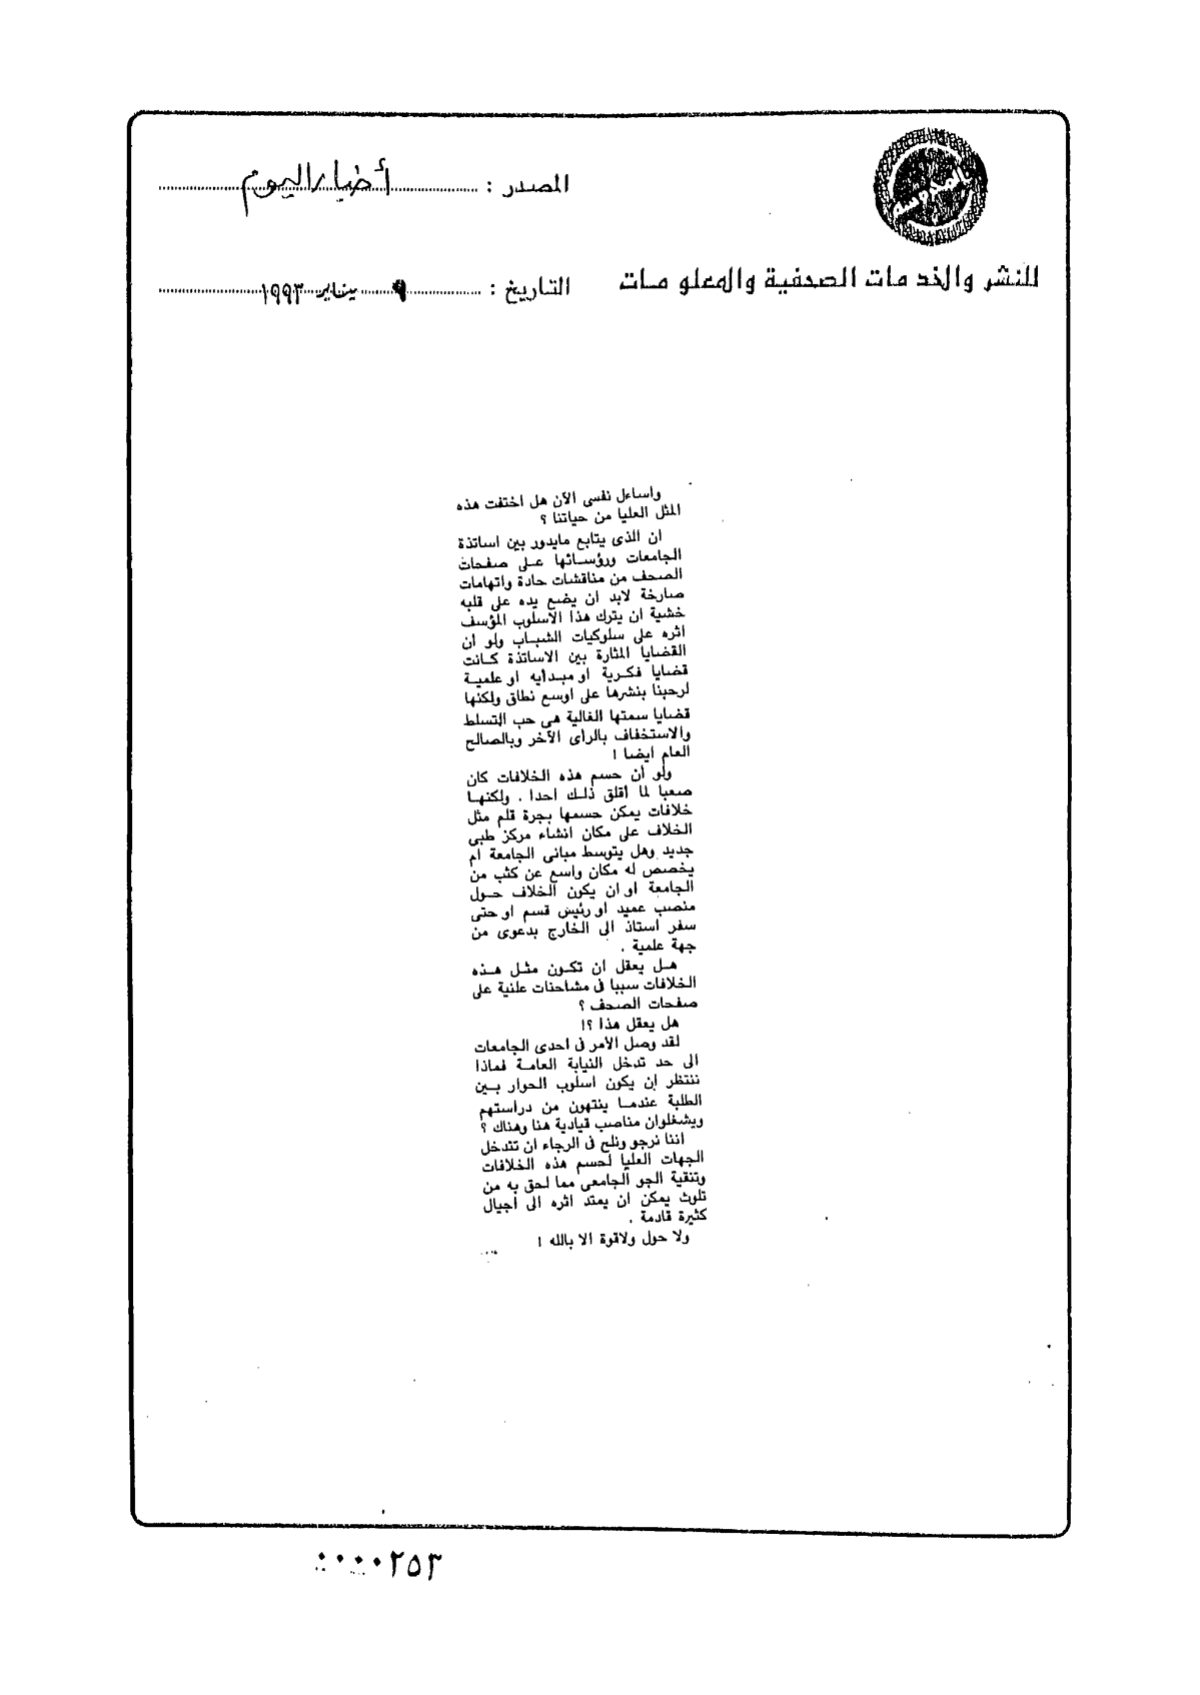 المصدر : أخبار اليوم
للنشر والخدمات الصحفية والمعلومات
التاريخ : ٩ يناير ١٩٩٣
واساءل نفسى الآن هل اختفت هذه
المثل العليا من حياتنا ؟
ان الذى يتابع مايدور بين اساتذة
الجامعات ورؤسائها على صفحات
الصحف من مناقشات حادة واتهامات
صارخة لابد ان يضع يده على قلبه
خشية ان يترك هذا الاسلوب المؤسف
اثره على سلوكيات الشباب ولو ان
القضايا المثارة بين الاساتذة كانت
قضايا فكرية او مبدأيه او علمية
لرحبنا بنشرها على اوسع نطاق ولكنها
قضايا سمتها الغالبة هى حب التسلط
والاستخفاف بالرأى الآخر وبالصالح
العام ايضا !
ولو أن حسم هذه الخلافات كان
صعبا لما أقلق ذلك احدا . ولكنها
خلافات يمكن حسمها بجرة قلم مثل
الخلاف على مكان انشاء مركز طبى
جديد وهل يتوسط مبانى الجامعة أم
يخصص له مكان واسع عن كثب من
الجامعة او ان يكون الخلاف حول
منصب عميد او رئيس قسم او حتى
سفر استاذ الى الخارج بدعوى من
جهة علمية .
هل يعقل ان تكون مثل هذه
الخلافات سببا فى مشاحنات علنية على
صفحات الصحف ؟
هل يعقل هذا ؟!
لقد وصل الأمر فى احدى الجامعات
الى حد تدخل النيابة العامة فماذا
ننتظر ان يكون اسلوب الحوار بين
الطلبة عندما ينتهون من دراستهم
ويشغلوان مناصب قيادية هنا وهناك ؟
اننا نرجو ونلح فى الرجاء ان تتدخل
الجهات العليا لحسم هذه الخلافات
وتنقية الجو الجامعى مما لحق به من
تلوث يمكن ان يمتد اثره الى أجيال
كثيرة قادمة .
ولا حول ولاقوة الا بالله !
٠٠٠٠٢٥٣